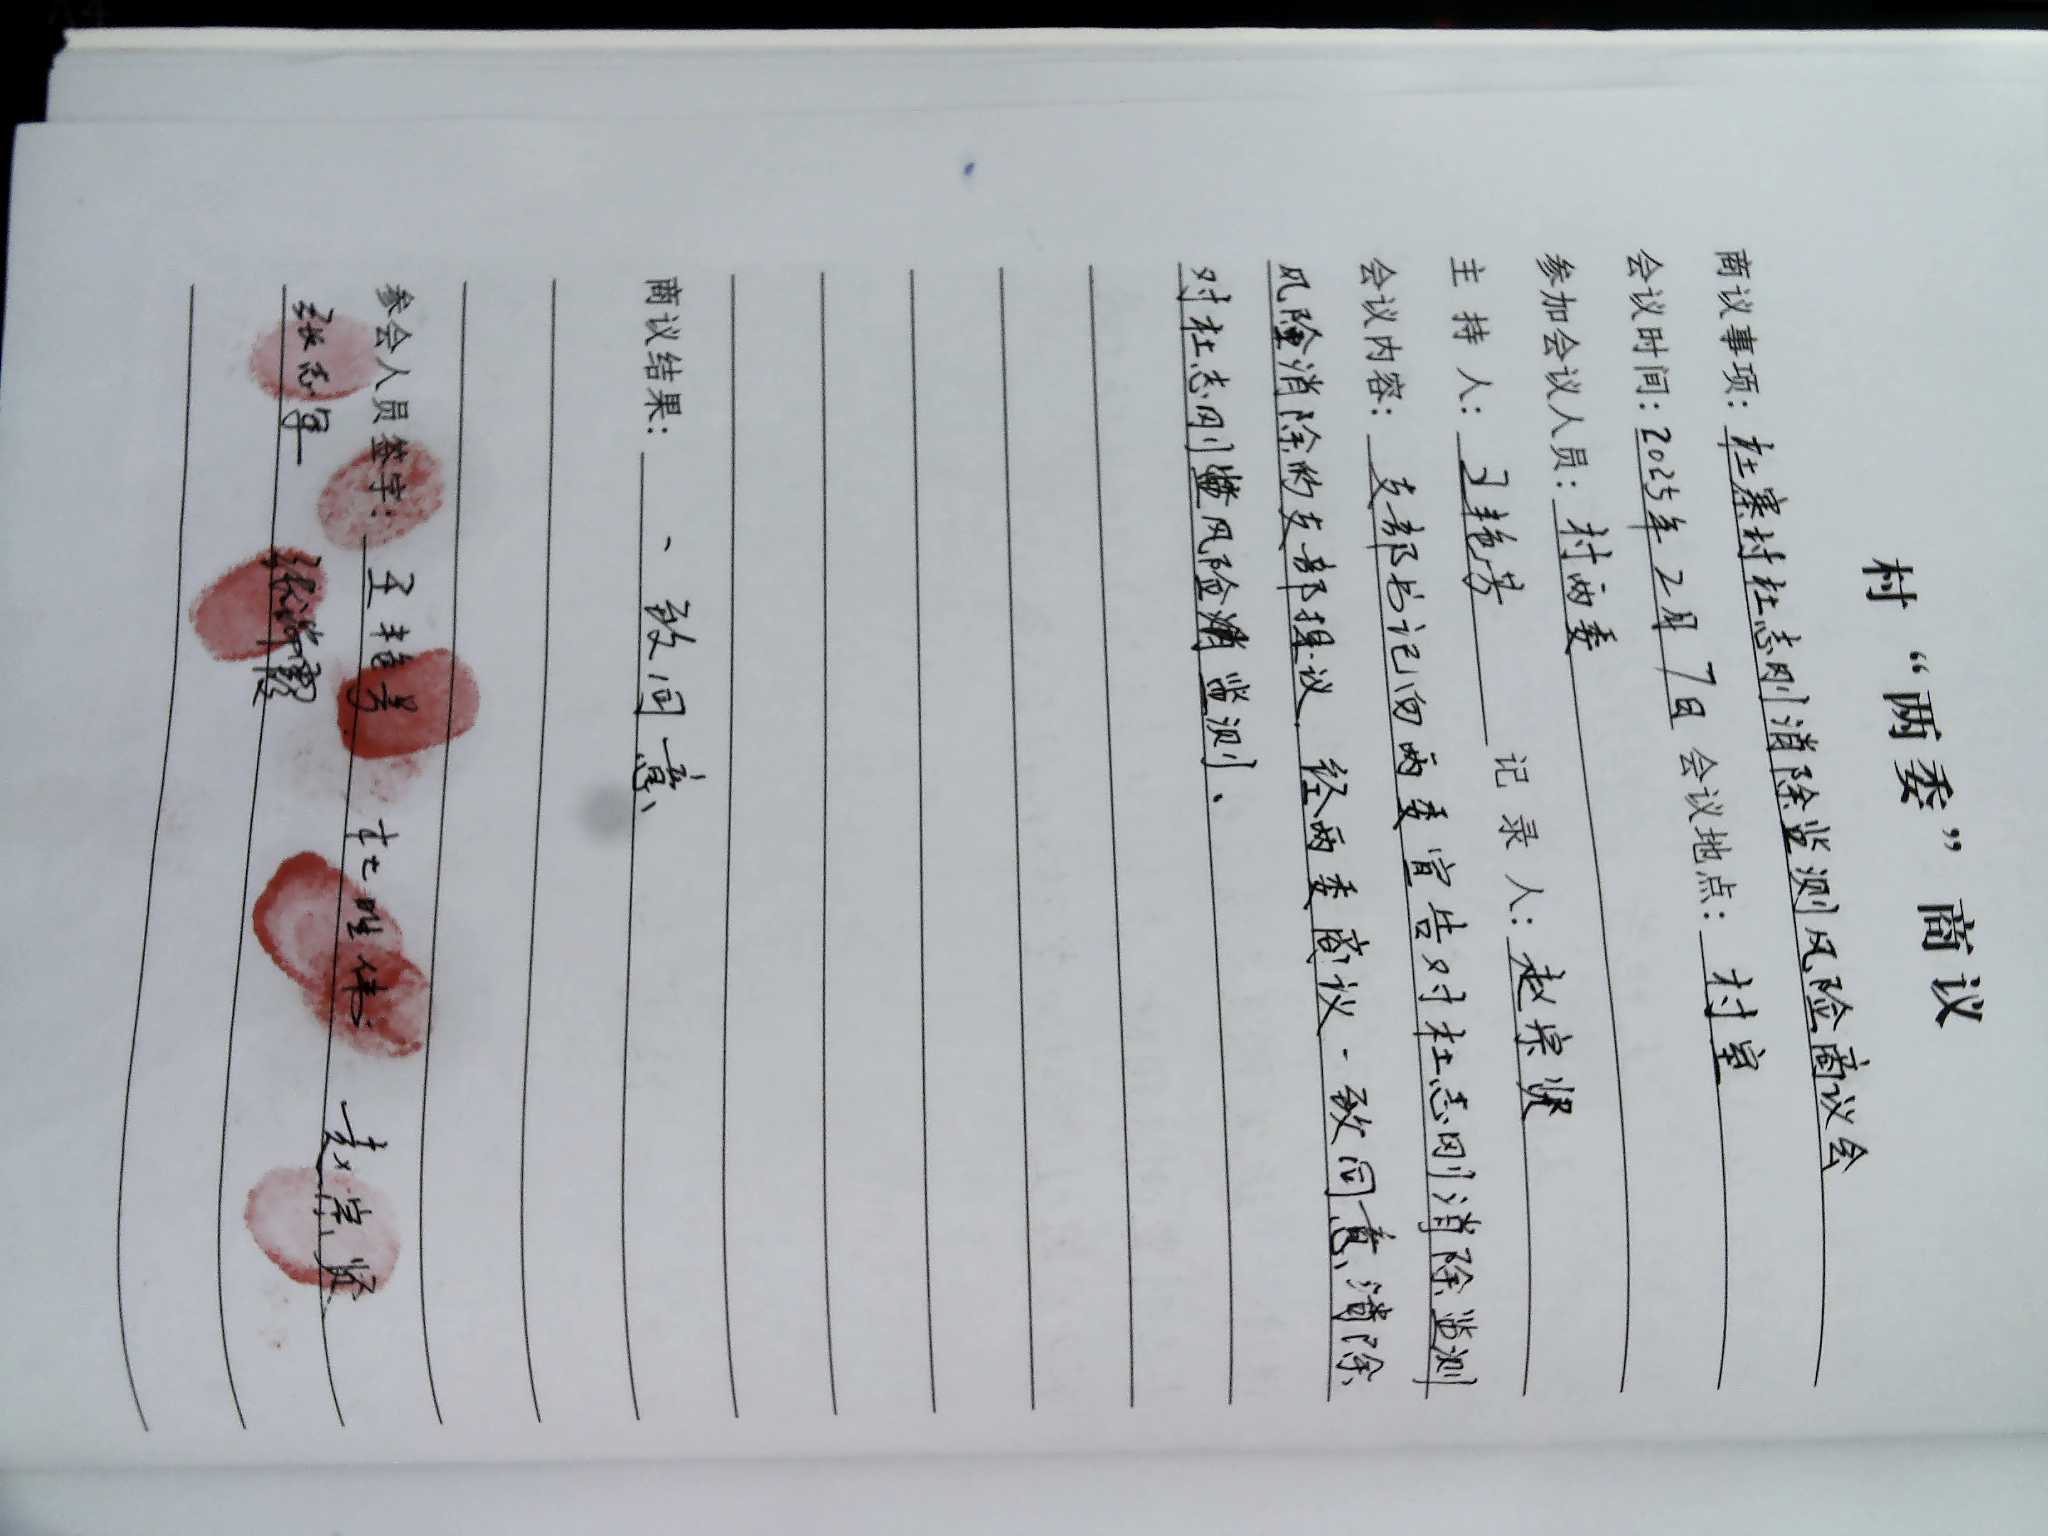 村“两委”商议
商议事项：杜寨村杜志刚消除监测风险商议会
会议时间：2025年2月7日 会议地点：村室
参加会议人员：村两委
主 持 人：艳芳 记 录 人：赵宗贤
会议内容：支部书记向两委宣告对杜志刚消除监测
风险消除的支部提议 经两委商议一致同意消除
对杜志刚 风险消 监测、
商议结果：一致同意、
参会人员签字：王艳芳 杜胜伟 赵宗贤
张志军 张海霞